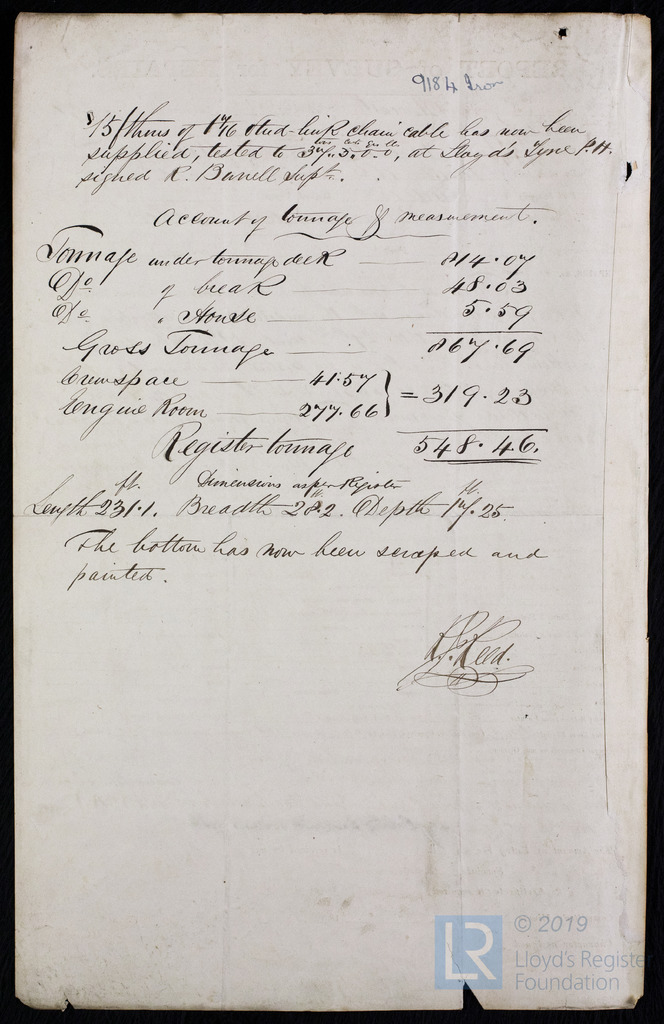 9184 Iron
15 fthms of 1 7/16 stud-link chain cable has now been
supplied, tested to 37.5.0.0, at Lloyd's Tyne P.H.
signed R. Barrell Supt.
Account of tonnage & measurement.
Tonnage under tonnage deck 814.07
Do of break 48.03
Do " House 5.59
Gross Tonnage 867.69
Crewspace 41.57
Engine Room 277.66 } = 319.23
Register tonnage 548.46.
Dimensions as per Register
Length 231.1 ft. Breadth 28.2 ft. Depth 17.25 ft.
The bottom has now been scraped and
painted.
Reed.
© 2019
LR Lloyd's Register
Foundation